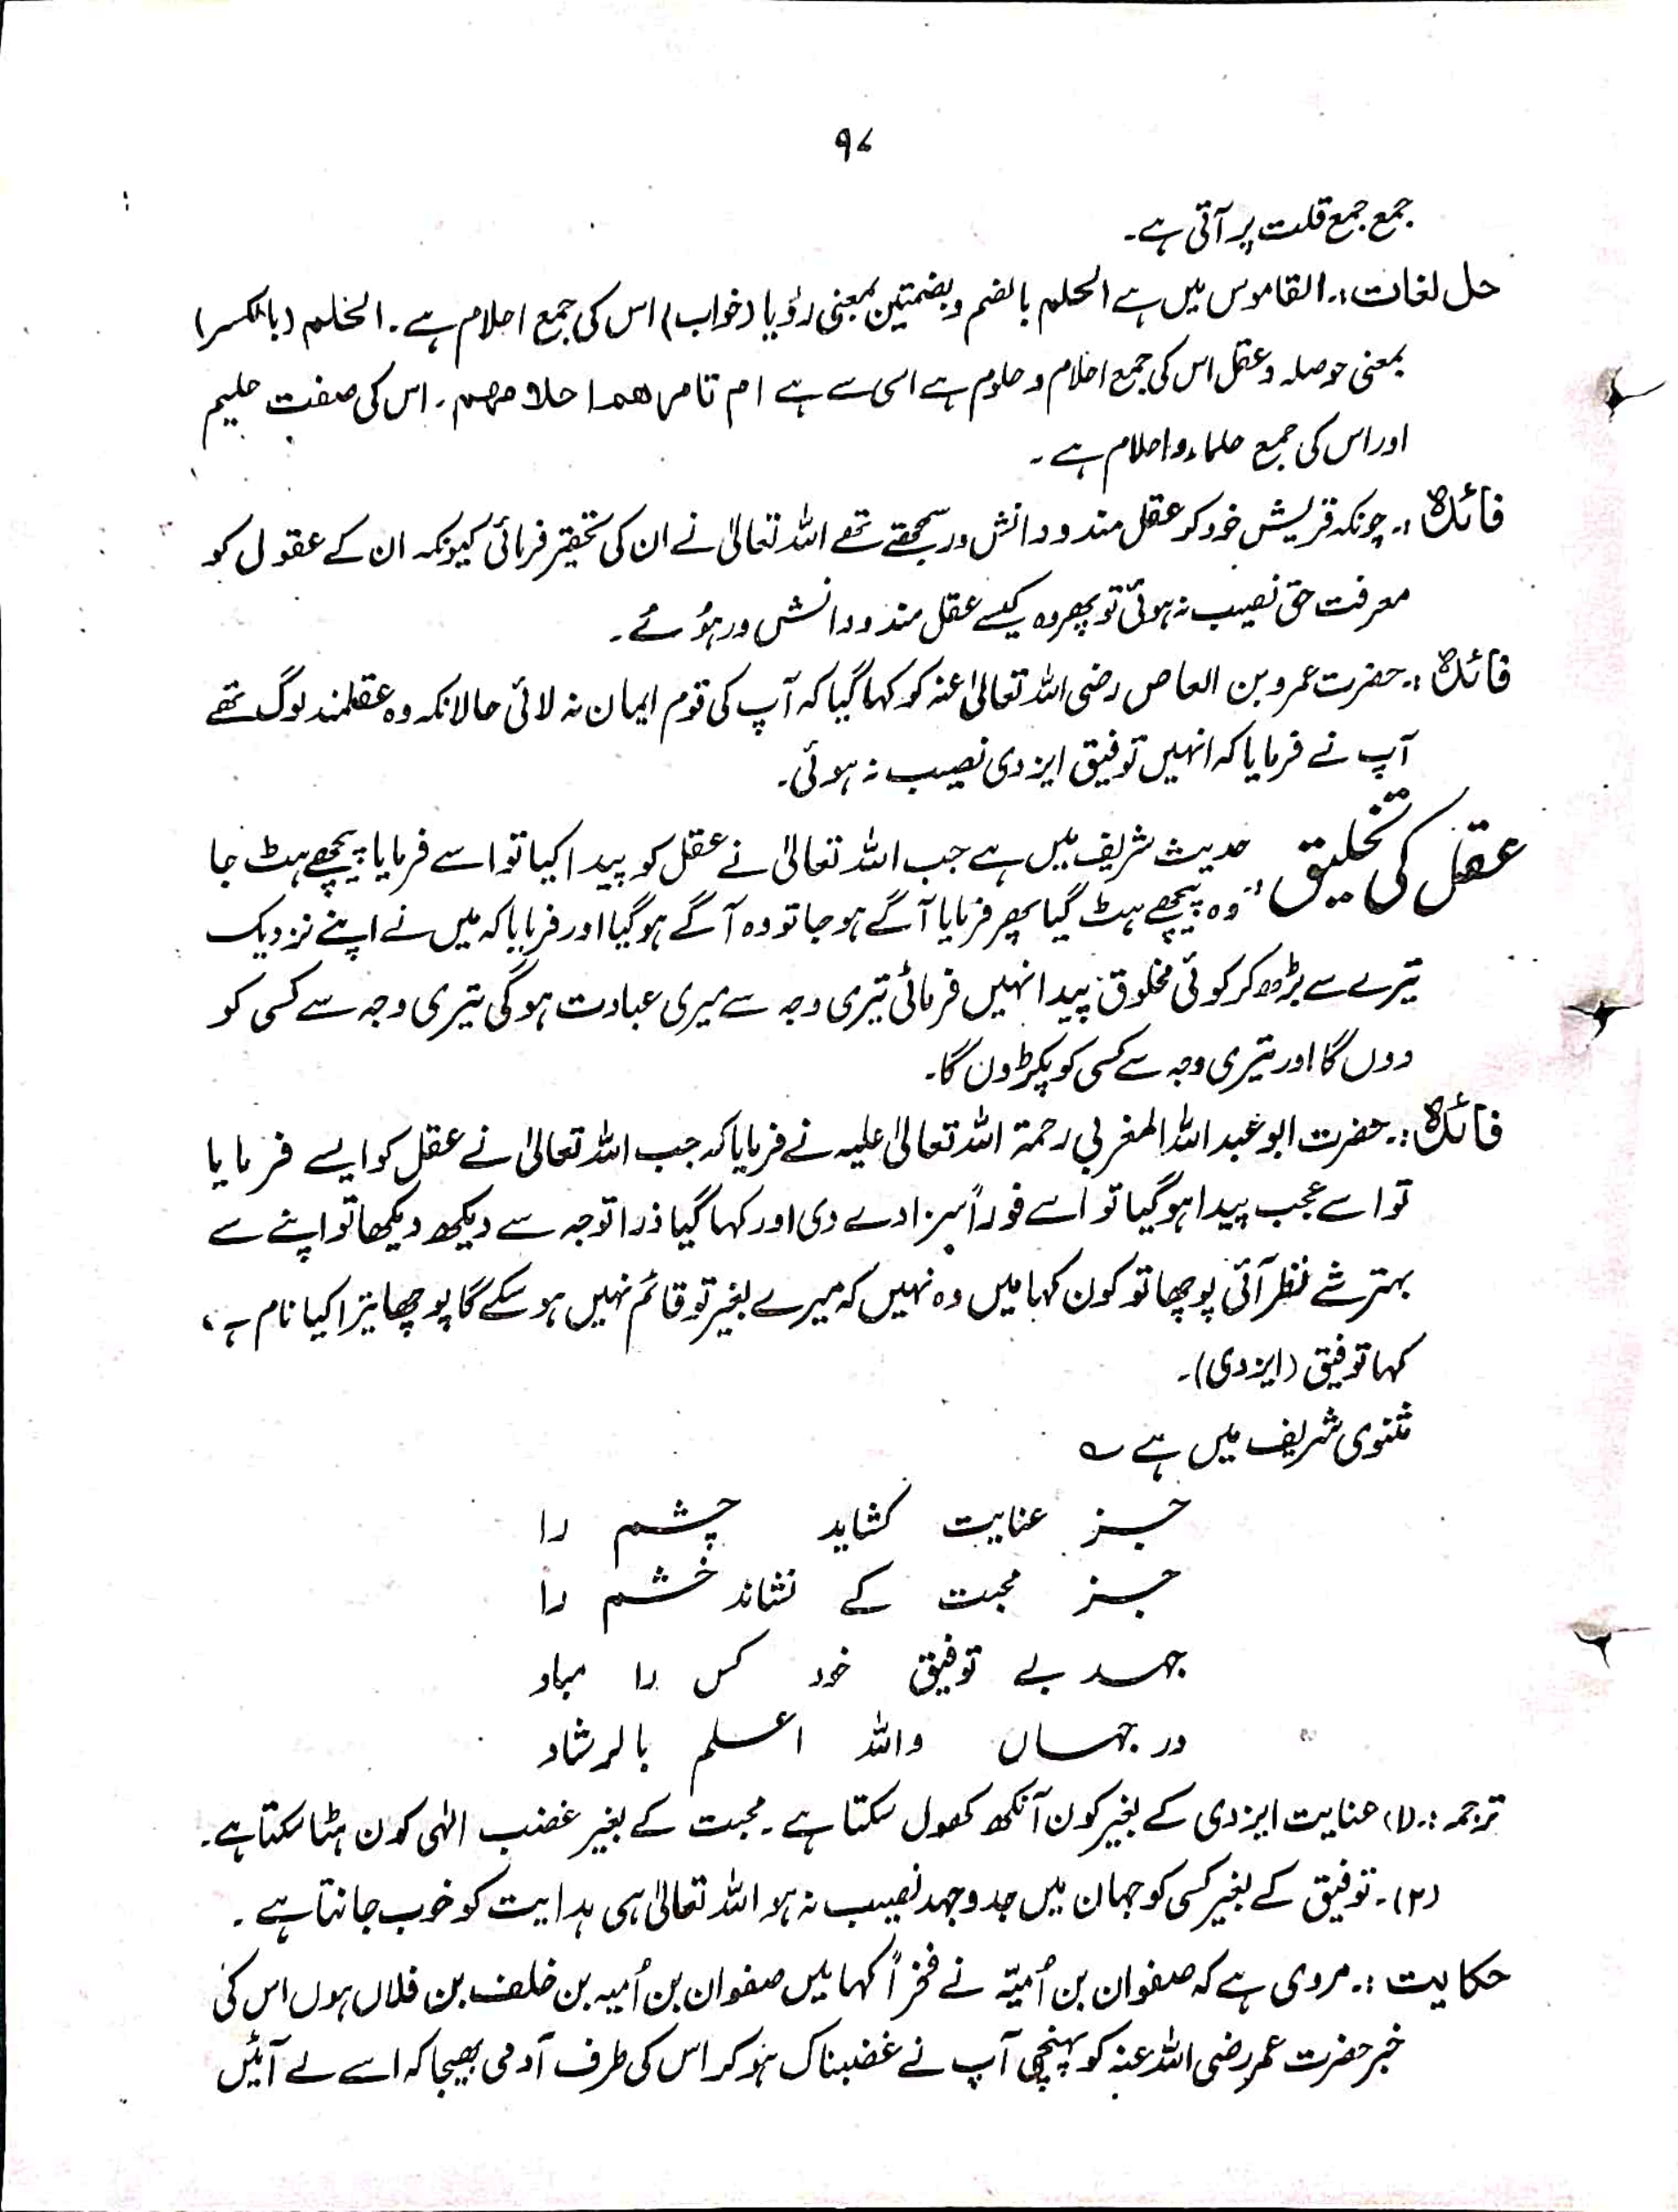 ۹۷
جمع جمع قلت پر آتی ہے۔
حل لغات :۔ القاموس میں ہے الحلم بالضم و بضمتین بمعنی رؤیا (خواب) اس کی جمع احلام ہے ۔ الحلم (بالکسر)
بمعنی حوصلہ و عقل اس کی جمع احلام و حلوم ہے اسی سے ہے ام تامرھم احلامھم ۔ اس کی صفت حلیم
اور اس کی جمع حلماء و احلام ہے ۔
فائدہ :۔ چونکہ قریش خود کو عقل مند و دانش ور سمجھتے تھے اللہ تعالیٰ نے ان کی تحقیر فرمائی کیونکہ ان کے عقول کو
معرفت حق نصیب نہ ہوئی تو پھر وہ کیسے عقل مند و دانش ور ہوُئے ۔
فائدہ :۔ حضرت عمرو بن العاص رضی اللہ تعالیٰ عنہ کو کہا گیا کہ آپ کی قوم ایمان نہ لائی حالانکہ وہ عقلمند لوگ تھے
آپ نے فرمایا کہ انہیں توفیق ایزدی نصیب نہ ہوئی۔
عقل کی تخلیق :۔ حدیث شریف میں ہے جب اللہ تعالیٰ نے عقل کو پیدا کیا تو اسے فرمایا پیچھے ہٹ جا
وہ پیچھے ہٹ گیا پھر فرمایا آگے ہو جا تو وہ آگے ہو گیا اور فرمایا کہ میں نے اپنے نزدیک
تیرے سے بڑھ کر کوئی مخلوق پیدا نہیں فرمائی تیری وجہ سے میری عبادت ہو گی تیری وجہ سے کسی کو
دوں گا اور تیری وجہ سے کسی کو پکڑوں گا۔
فائدہ :۔ حضرت ابو عبد اللہ المغربی رحمۃ اللہ تعالیٰ علیہ نے فرمایا کہ جب اللہ تعالیٰ نے عقل کو ایسے فرمایا
تو اسے عجب پیدا ہو گیا تو اُسے فوراً سزا دے دی اور کہا گیا ذرا توجہ سے دیکھ دیکھا تو اپنے سے
بہتر شے نظر آئی پوچھا تو کون کہا میں وہ نہیں کہ میرے بغیر تو قائم نہیں ہو سکے گا پوچھا تیرا کیا نام ہے،
کہا توفیق (ایزدی)۔
مثنوی شریف میں ہے ؎
جز عنایت کشاید چشم را
جز محبت کے نشاند خشم را
جہد بے توفیق خود کس را مباد
در جہاں واللہ اعلم بالرشاد
ترجمہ :۔ (۱) عنایت ایزدی کے بغیر کون آنکھ کھول سکتا ہے ۔ محبت کے بغیر غضب الٰہی کون ہٹا سکتا ہے۔
(۲)۔ توفیق کے بغیر کسی کو جہان میں جدوجہد نصیب نہ ہو اللہ تعالیٰ ہی ہدایت کو خوب جانتا ہے ۔
حکایت :۔ مروی ہے کہ صفوان بن اُمیّہ نے فخراً کہا میں صفوان بن اُمیہ بن خلف بن فلاں ہوں اس کی
خبر حضرت عمر رضی اللہ عنہ کو پہنچی آپ نے غضبناک ہو کر اس کی طرف آدمی بھیجا کہ اسے لے آئیں